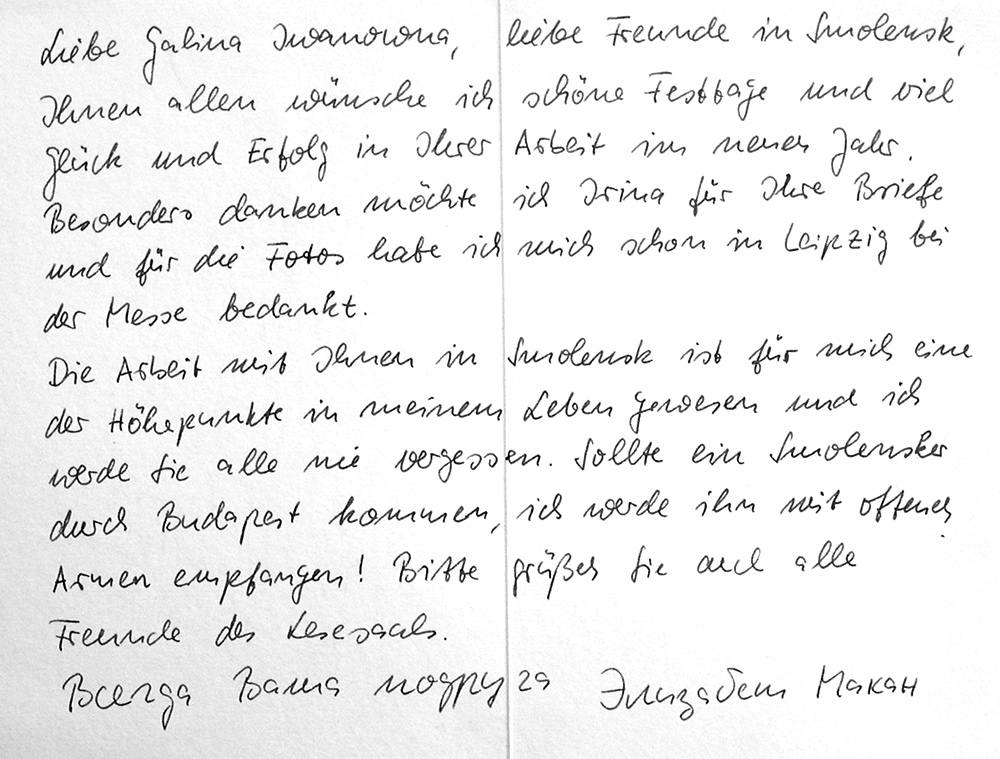 Liebe Galina Iwanowna, liebe Freunde in Smolensk,
Ihnen allen wünsche ich schöne Festtage und viel
Glück und Erfolg in Ihrer Arbeit im neuen Jahr.
Besonders danken möchte ich Irina für Ihre Briefe
und für die Fotos habe ich mich schon in Leipzig bei
der Messe bedankt.
Die Arbeit mit Ihnen in Smolensk ist für mich eine
der Höhepunkte in meinem Leben gewesen und ich
werde Sie alle nie vergessen. Sollte ein Smolensker
durch Budapest kommen, ich werde ihn mit offenen
Armen empfangen! Bitte grüßen Sie auch alle
Freunde des Lesesaals.
Всегда Ваша подруга Элизабет Макан